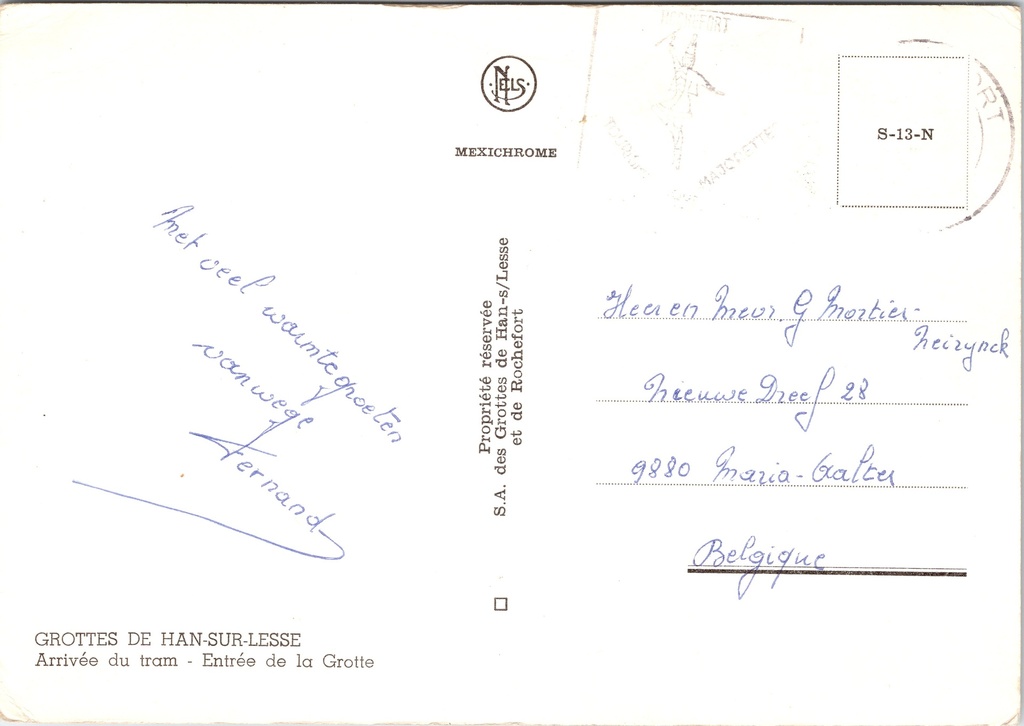 NELS
MEXICHROME
ROCHEFORT
MAJORETTE
ORT
S-13-N
Met veel warmtegroeten
vanwege
Fernand
Propriété réservée
S.A. des Grottes de Han-s/Lesse
et de Rochefort
Heer en Mevr. G Mortier-
Neirynck
Nieuwe Dreef 28
9880 Maria-Aalter
Belgique
GROTTES DE HAN-SUR-LESSE
Arrivée du tram - Entrée de la Grotte